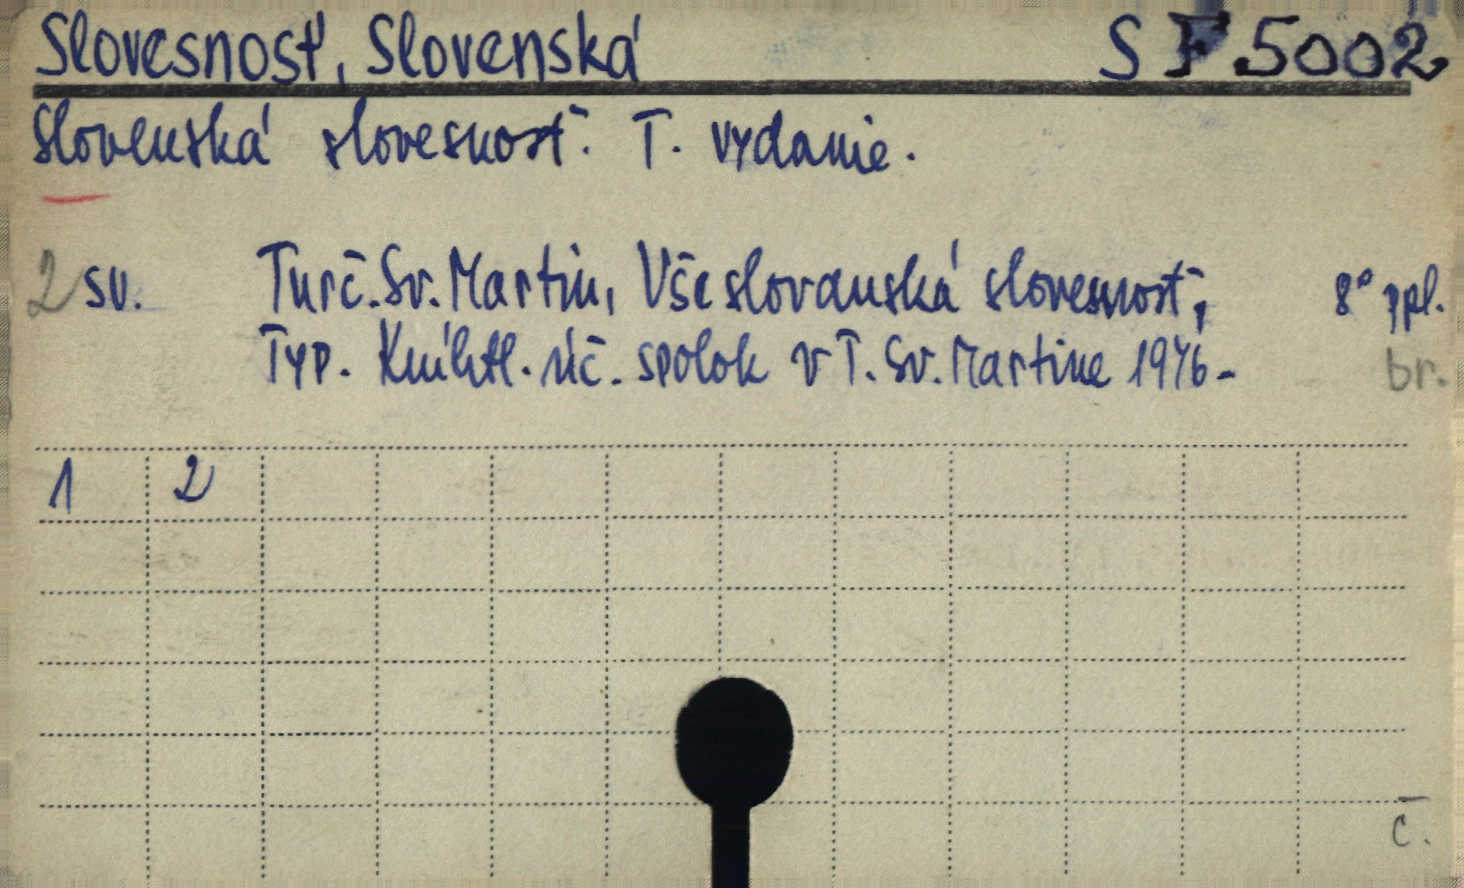 Slovesnosť, Slovenská S F 5002
Slovenská slovesnosť. I. vydanie.
2 sv. Turč. Sv. Martin, Všeslovanská slovesnosť, 8° ppl.
Typ. Kníhtl. úč. spolok v T. Sv. Martine 1946- br.
1 2
č.